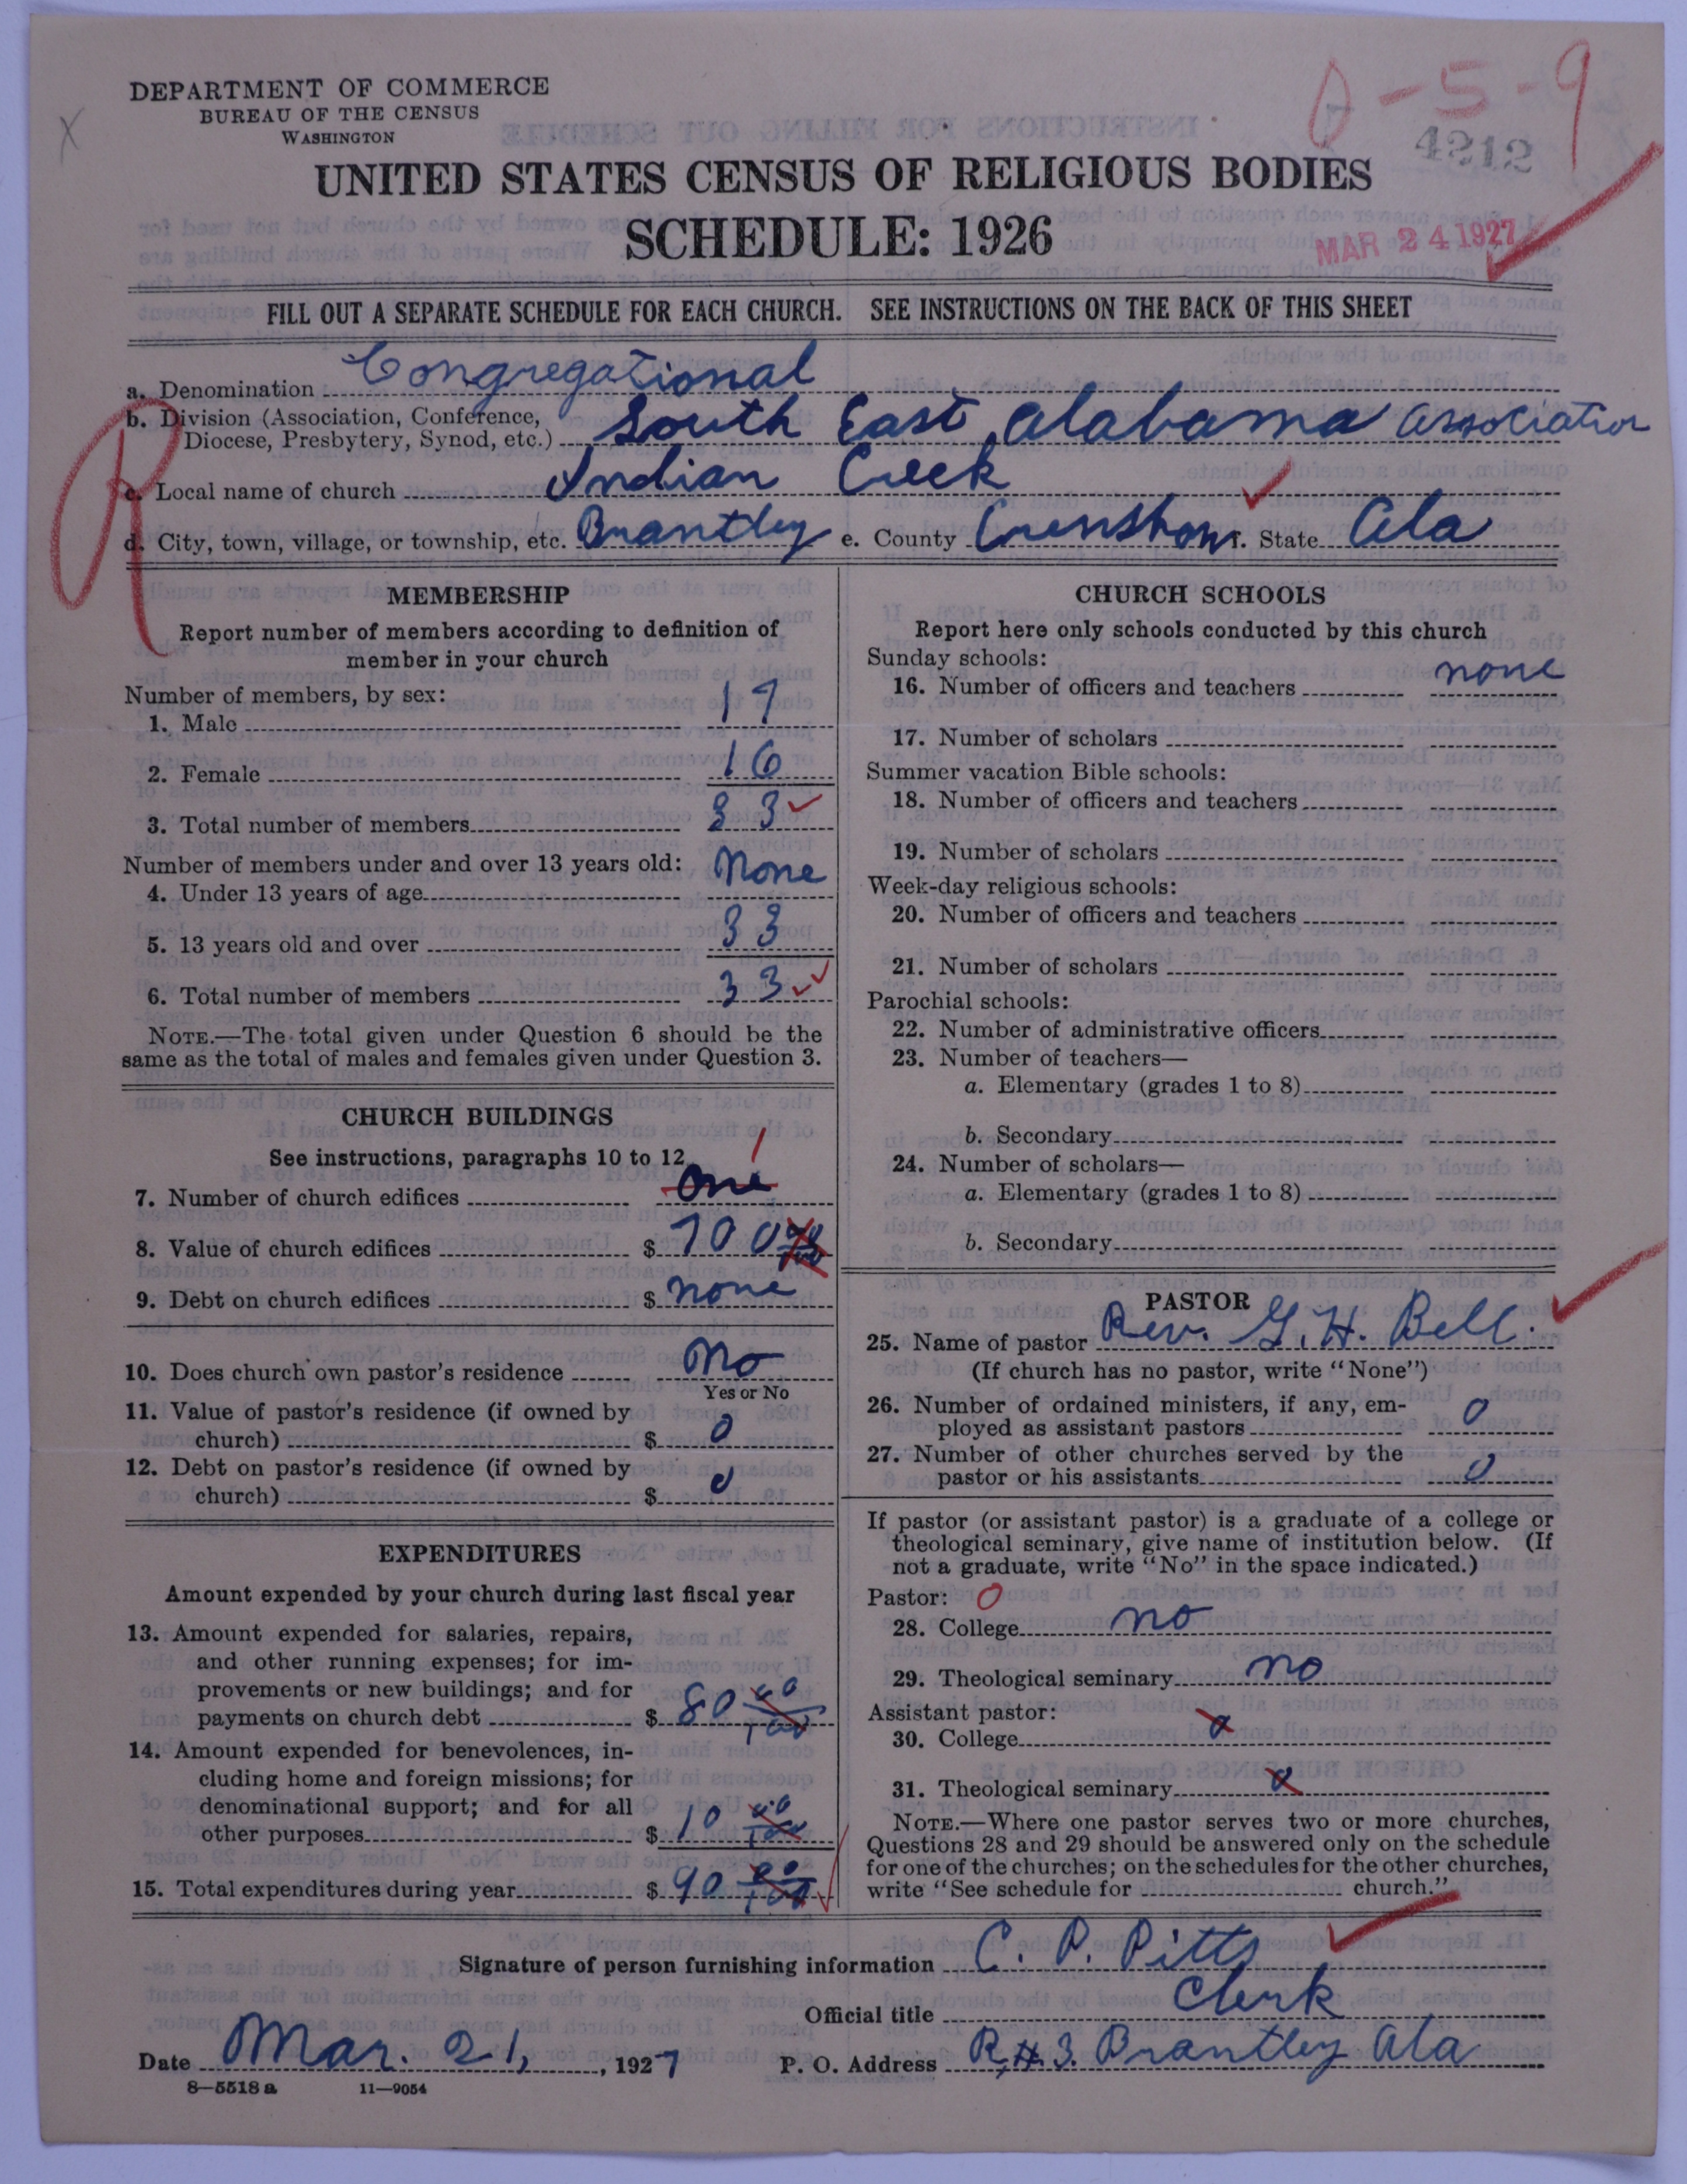 DEPARTMENT OF COMMERCE
BUREAU OF THE CENSUS
WASHINGTON
0-5-9
4212
UNITED STATES CENSUS OF RELIGIOUS BODIES
SCHEDULE: 1926
MAR 24 1927
FILL OUT A SEPARATE SCHEDULE FOR EACH CHURCH. SEE INSTRUCTIONS ON THE BACK OF THIS SHEET
R
a. Denomination Congregational
b. Division (Association, Conference,
Diocese, Presbytery, Synod, etc.) South East Alabama Association
c. Local name of church Indian Creek
d. City, town, village, or township, etc. Brantley e. County Crenshaw f. State Ala
MEMBERSHIP
Report number of members according to definition of
member in your church
Number of members, by sex:
1. Male 17
2. Female 16
3. Total number of members 33
Number of members under and over 13 years old:
4. Under 13 years of age None
5. 13 years old and over 33
6. Total number of members 33
NOTE.—The total given under Question 6 should be the
same as the total of males and females given under Question 3.
CHURCH BUILDINGS
See instructions, paragraphs 10 to 12
1
7. Number of church edifices One
8. Value of church edifices $ 700
9. Debt on church edifices $ none
10. Does church own pastor's residence No
Yes or No
11. Value of pastor's residence (if owned by
church) $ 0
12. Debt on pastor's residence (if owned by
church) $ 0
EXPENDITURES
Amount expended by your church during last fiscal year
13. Amount expended for salaries, repairs,
and other running expenses; for im-
provements or new buildings; and for
payments on church debt $ 80 00/100
14. Amount expended for benevolences, in-
cluding home and foreign missions; for
denominational support; and for all
other purposes $ 10 00/100
15. Total expenditures during year $ 90 00/100
CHURCH SCHOOLS
Report here only schools conducted by this church
Sunday schools:
16. Number of officers and teachers none
17. Number of scholars
Summer vacation Bible schools:
18. Number of officers and teachers
19. Number of scholars
Week-day religious schools:
20. Number of officers and teachers
21. Number of scholars
Parochial schools:
22. Number of administrative officers
23. Number of teachers—
a. Elementary (grades 1 to 8)
b. Secondary
24. Number of scholars—
a. Elementary (grades 1 to 8)
b. Secondary
PASTOR
25. Name of pastor Rev. G. H. Bell.
(If church has no pastor, write "None")
26. Number of ordained ministers, if any, em-
ployed as assistant pastors 0
27. Number of other churches served by the
pastor or his assistants 0
If pastor (or assistant pastor) is a graduate of a college or
theological seminary, give name of institution below. (If
not a graduate, write "No" in the space indicated.)
Pastor: 0
28. College no
29. Theological seminary no
Assistant pastor:
30. College 0
31. Theological seminary 0
NOTE.—Where one pastor serves two or more churches,
Questions 28 and 29 should be answered only on the schedule
for one of the churches; on the schedules for the other churches,
write "See schedule for church."
Signature of person furnishing information C. P. Pitts
Official title Clerk
Date Mar. 21, 1927 P. O. Address R.#3. Brantley Ala
8—5518 a 11—9054